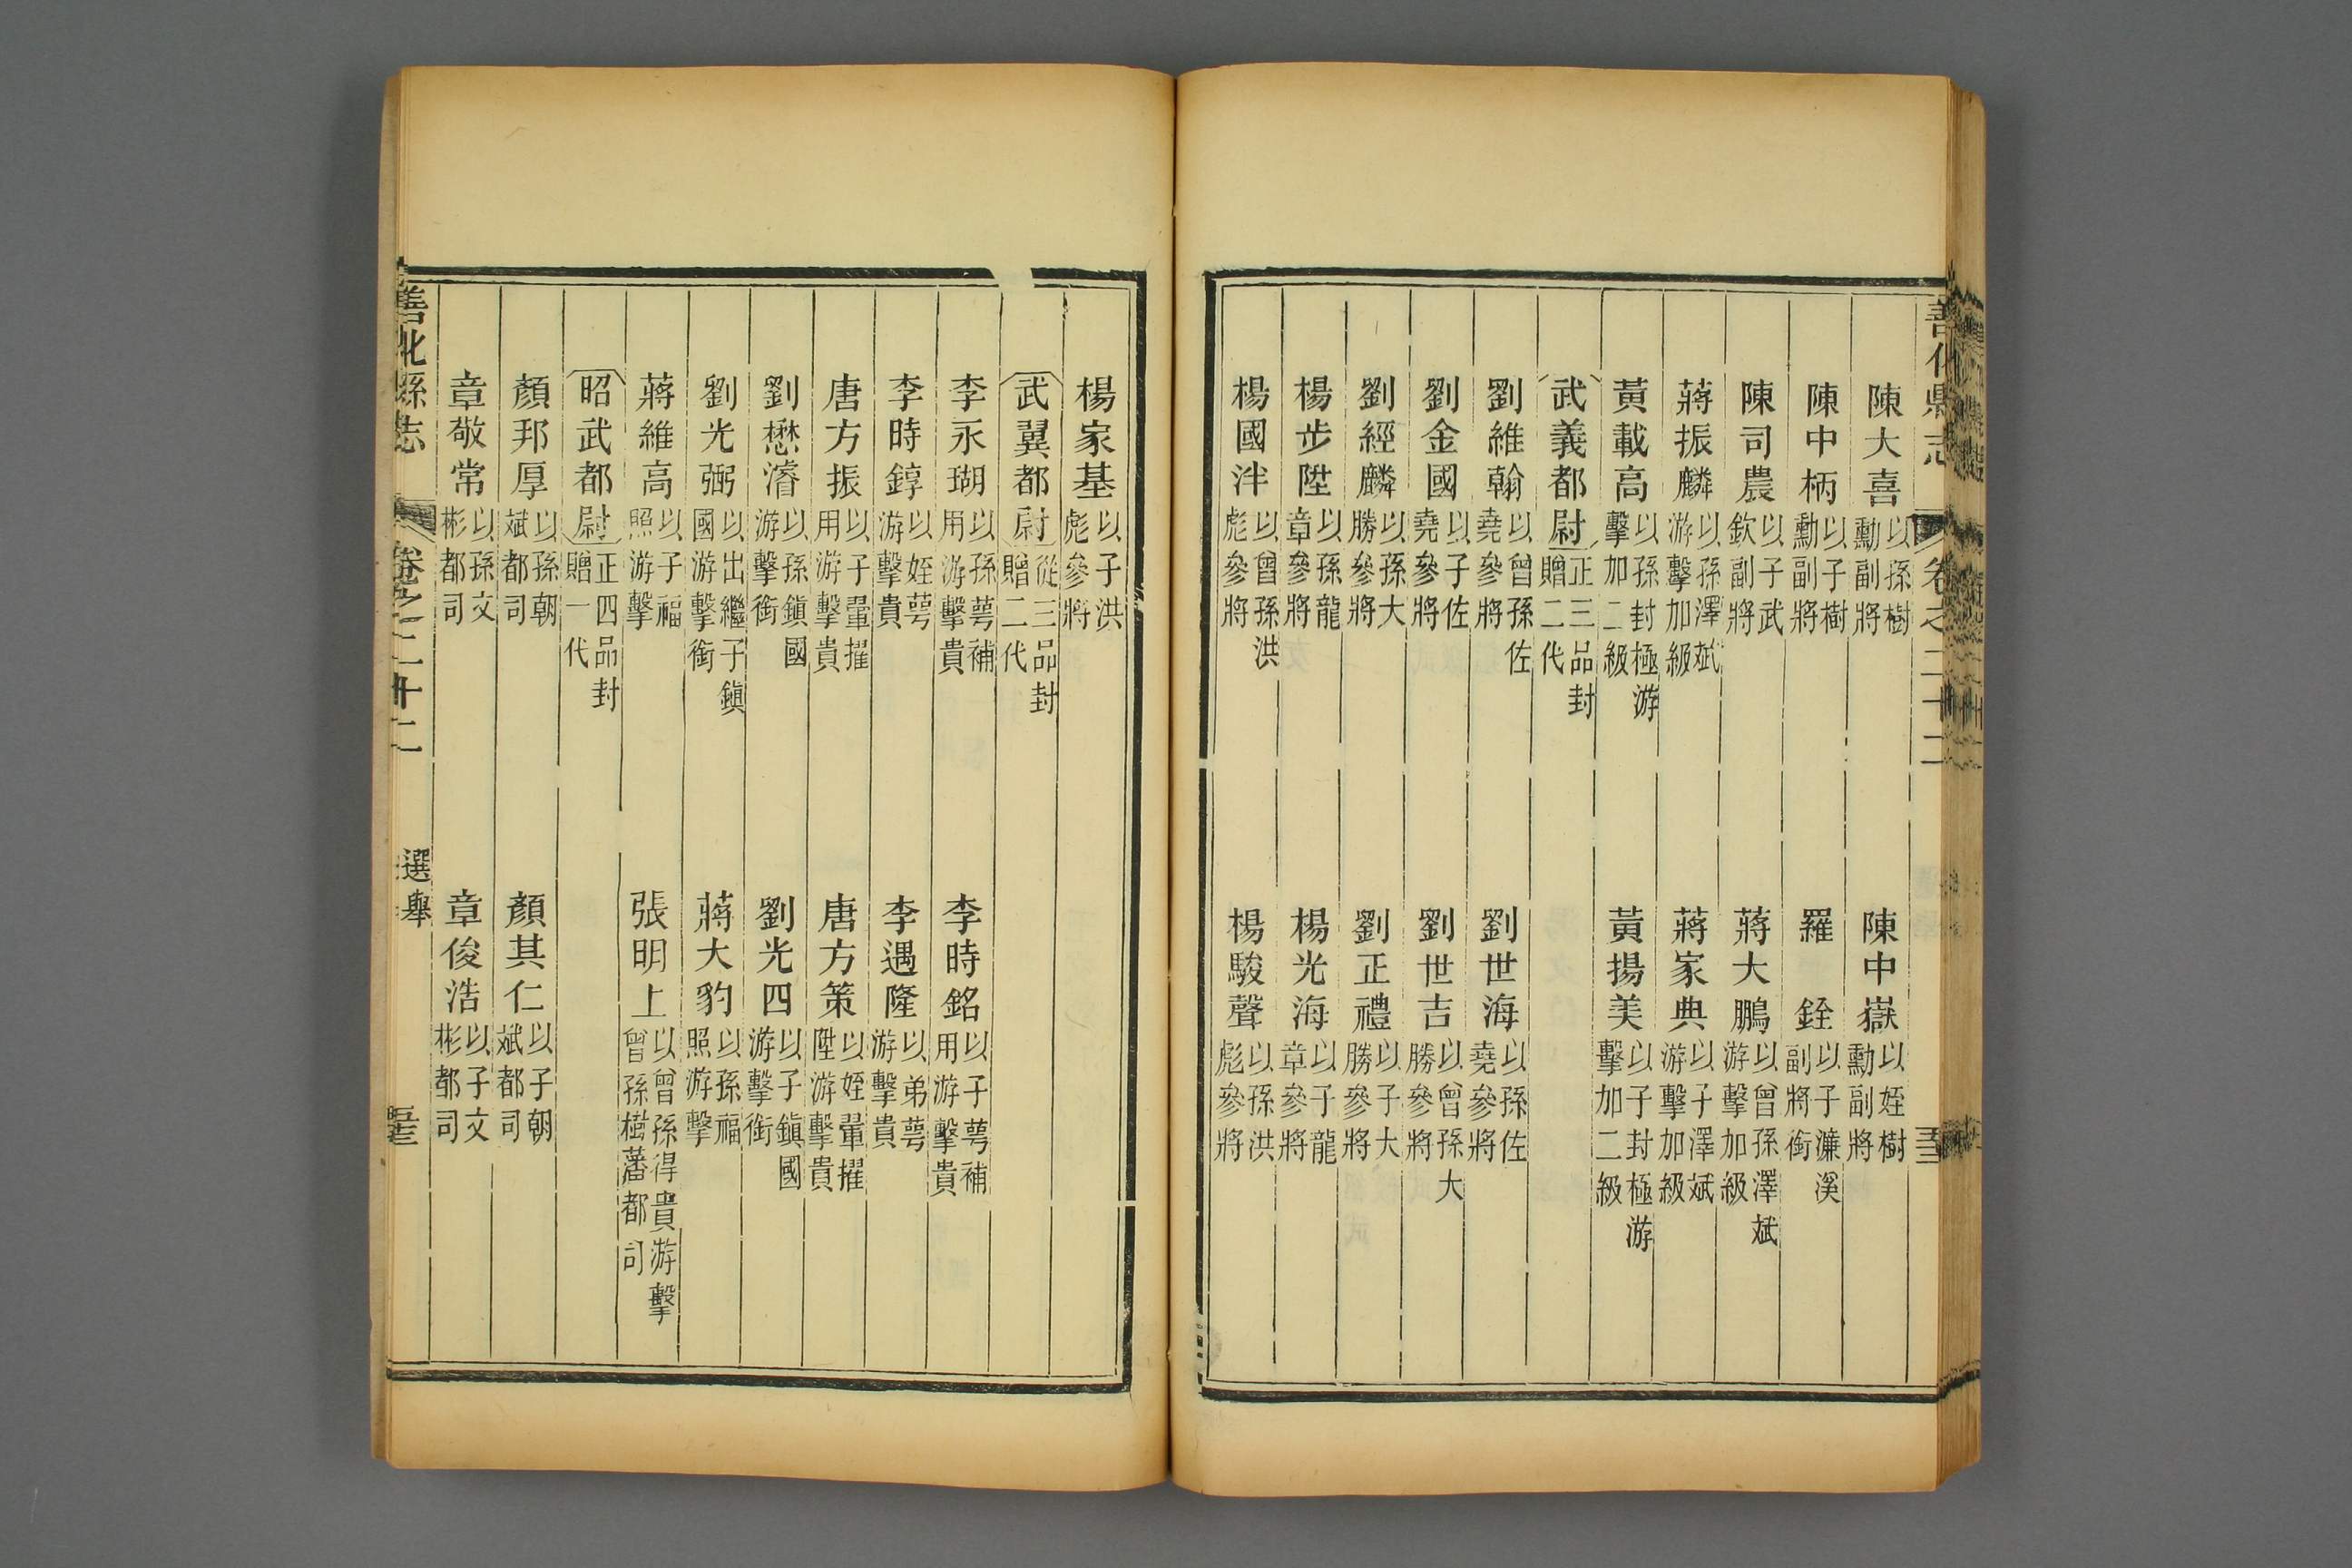 善化縣志 卷之二十二
陳大喜以孫樹勳副將 陳中嶽以姪樹勳副將
陳中柄以子樹勳副將 羅銓以子濂溪副將銜
陳司農以子武欽副將 蔣大鵬以曾孫澤斌游擊加級
蔣振麟以孫澤斌游擊加級 蔣家典以子澤斌游擊加級
黃載高以孫封極游擊加二級 黃揚美以子封極游擊加二級
武義都尉正三品封贈二代
劉維翰以曾孫佐堯參將 劉世海以孫佐堯參將
劉金國以子佐堯參將 劉世吉以曾孫大勝參將
劉經麟以孫大勝參將 劉正禮以子大勝參將
楊步陞以孫龍章參將 楊光海以子龍章參將
楊國泮以曾孫洪彪參將 楊駿聲以孫洪彪參將
楊家基以子洪彪參將
武翼都尉從三品封贈二代
李永瑚以孫萼補用游擊貴 李時銘以子萼補用游擊貴
李時錞以姪萼游擊貴 李遇隆以弟萼游擊貴
唐方振以子翬擢用游擊貴 唐方策以姪翬擢陞游擊貴
劉懋濬以孫鎮國游擊銜 劉光四以子鎮國游擊銜
劉光弼以出繼子鎮國游擊銜 蔣大豹以孫福照游擊
蔣維高以子福照游擊 張明上以曾孫得貴游擊曾孫樹蕃都司
昭武都尉正四品封贈一代
顏邦厚以孫朝斌都司 顏其仁以子朝斌都司
章敬常以孫文彬都司 章俊浩以子文彬都司
善化縣志 卷之二十二 選舉